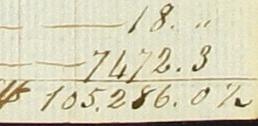 — — 18. "
— — 7472.3
$ 105.286.0½